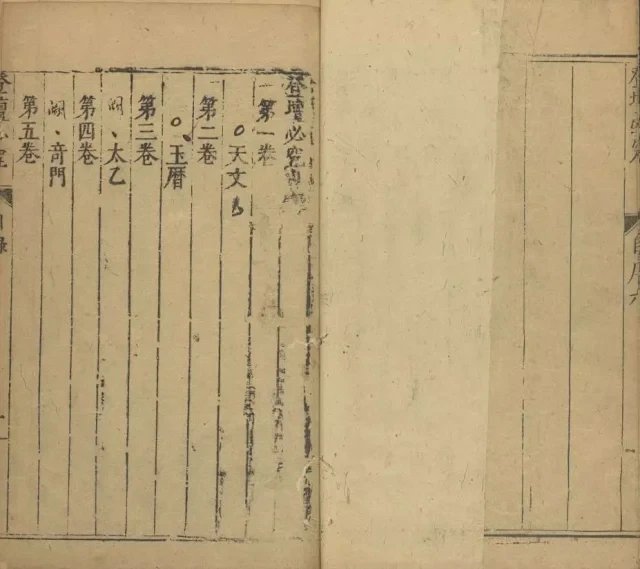 登壇必究
登壇必究目
第一卷
○天文
第二卷
○玉暦
第三卷
太乙
第四卷
竒門
第五卷
登壇必究 目錄 一